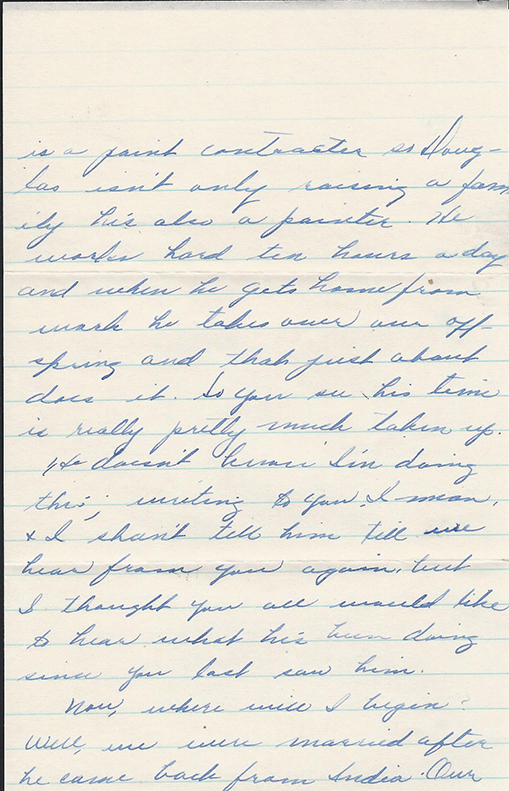 is a paint contracter so Doug-
las isn't only raising a fam
ily his also a painter. He
works hard ten hours a day
and when he gets home from
work he takes over our off-
spring and that just about
does it. So you see his time
is really pretty much taken up.
He doesn't know I'm doing
this; writing to you I mean,
& I shan't tell him till we
hear from you again, but
I thought you all would like
to hear what his been doing
since you last saw him.
Now, where will I begin.
Well, we were married after
he came back from India. Our